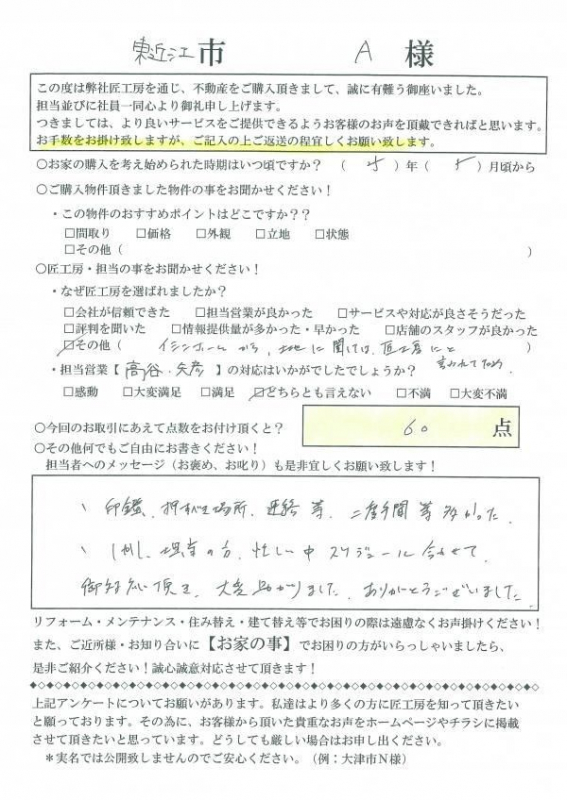 東近江市 A 様
この度は弊社匠工房を通じ、不動産をご購入頂きまして、誠に有難う御座いました。
担当並びに社員一同心より御礼申し上げます。
つきましては、より良いサービスをご提供できるようお客様のお声を頂戴できればと思います。
お手数をお掛け致しますが、ご記入の上ご返送の程宜しくお願い致します。
○お家の購入を考え始められた時期はいつ頃ですか? ( )年( )月頃から
○ご購入物件頂きました物件の事をお聞かせください!
・この物件のおすすめポイントはどこですか??
□間取り □価格 □外観 □立地 □状態
□その他( )
○匠工房・担当の事をお聞かせください!
・なぜ匠工房を選ばれましたか?
□会社が信頼できた □担当営業が良かった □サービスや対応が良さそうだった
□評判を聞いた □情報提供量が多かった・早かった □店舗のスタッフが良かった
☑その他( イシンホームから、土地に関しては、匠工房にと )
言われて
・担当営業【高谷 矢彦】の対応はいかがでしたでしょうか?
□感動 □大変満足 □満足 ☑どちらとも言えない □不満 □大変不満
○今回のお取引にあえて点数をお付け頂くと? 60 点
○その他何でもご自由にお書きください!
担当者へのメッセージ(お褒め、お叱り)も是非宜しくお願い致します!
、印鑑、押す場所、連絡等、二度手間等多かった。
、しかし、担当の方、忙しい中スケジュール合わせて、
御対応頂き、大変助かりました。ありがとうございました。
リフォーム・メンテナンス・住み替え・建て替え等でお困りの際は遠慮なくお声掛けください!
また、ご近所様・お知り合いに【お家の事】でお困りの方がいらっしゃいましたら、
是非ご紹介ください!誠心誠意対応させて頂きます!
上記アンケートについてお願いがあります。私達はより多くの方に匠工房を知って頂きたい
と願っております。その為に、お客様から頂いた貴重なお声をホームページやチラシに掲載
させて頂きたいと思っています。どうしても厳しい場合はお申し出ください。
＊実名では公開致しませんのでご安心ください。(例:大津市N様)